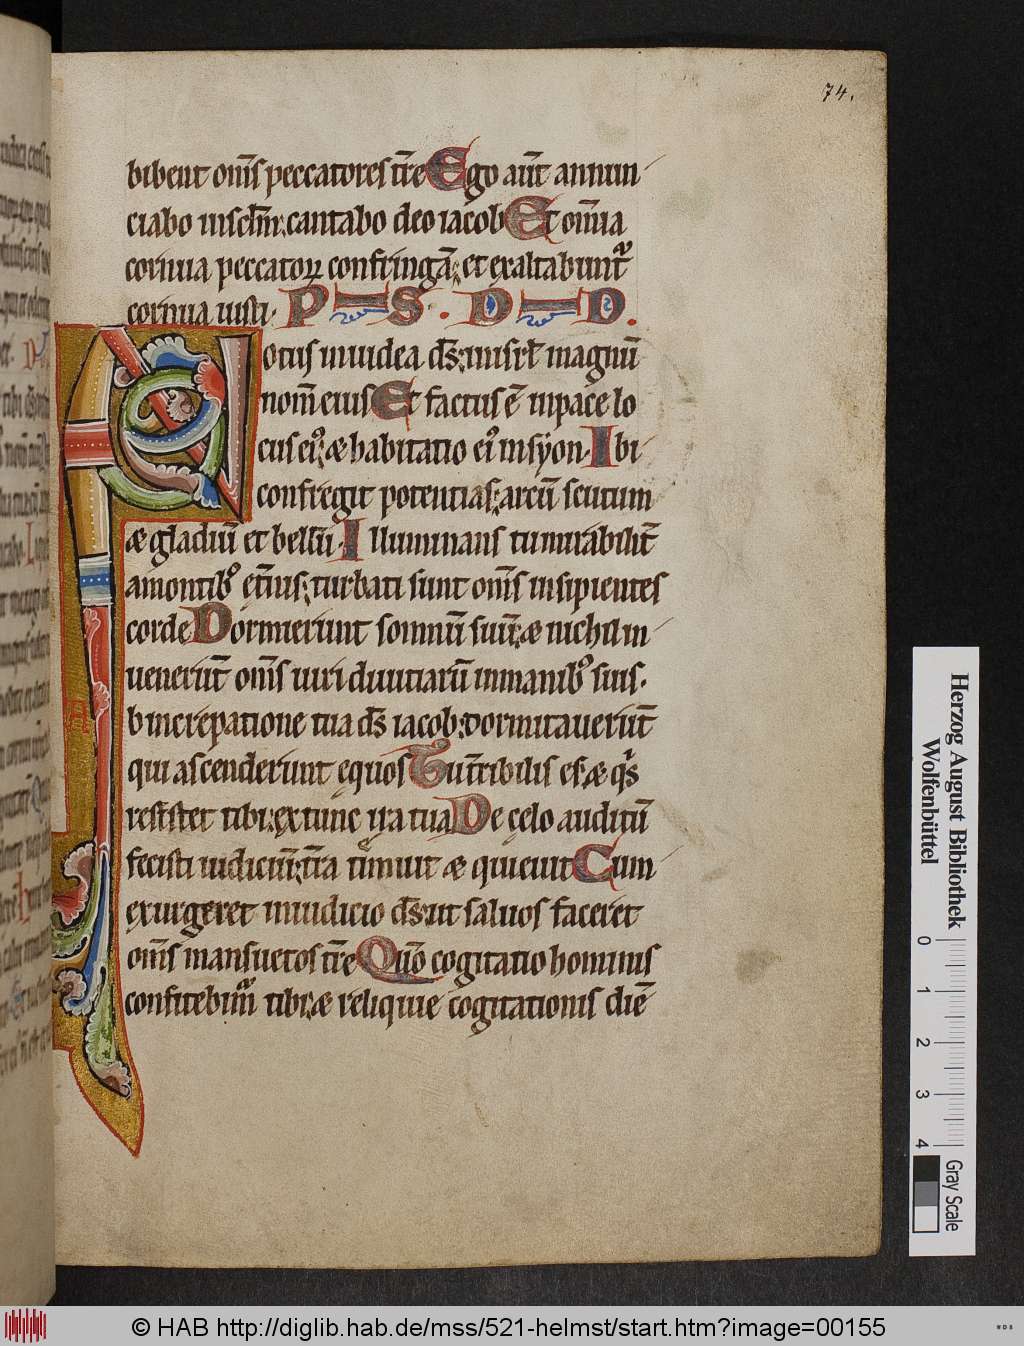 74.
bibent om̅s peccatores tr̅e Ego aut̅ annun
ciabo in sc̅lm̅; cantabo deo iacob Et om̅ia
cornua peccatoꝝ confringa̅; et exaltabunt᷑
cornua iusti. P S. D D.
Notus in iudea d̅s; in isrl̅ magnu̅
nom̅ eius Et factus e̅ in pace lo
cus eiꝰ; & habitatio eiꝰ in syon. Ibi
confregit potentias; arcu̅ scutum
& gladiu̅ et bellu̅. Illuminans tu mirabilit̅
a montibꝰ et̅nis; turbati sunt om̅s insipientes
corde Dormierunt somnu̅ suu̅; & nichil in
uenerut̅ om̅s uiri diuitiaru̅ in manibꝰ suis.
b increpatione tua d̅s iacob; dormitauerut̅
qui ascenderunt equos Tu t̅ribilis es; & q̅s
resistet tibi; ex tunc ira tua De celo auditu̅
fecisti iudiciu̅; t̅ra timuit & quieuit Cum
exurgeret in iudicio d̅s; ut saluos faceret
om̅s mansuetos t̅re Qu̅o cogitatio hominis
confitebit᷑ tibi; & reliquie cogitationis die̅
Herzog August Bibliothek
Wolfenbüttel
0 1 2 3 4
Gray Scale
© HAB http://diglib.hab.de/mss/521-helmst/start.htm?image=00155